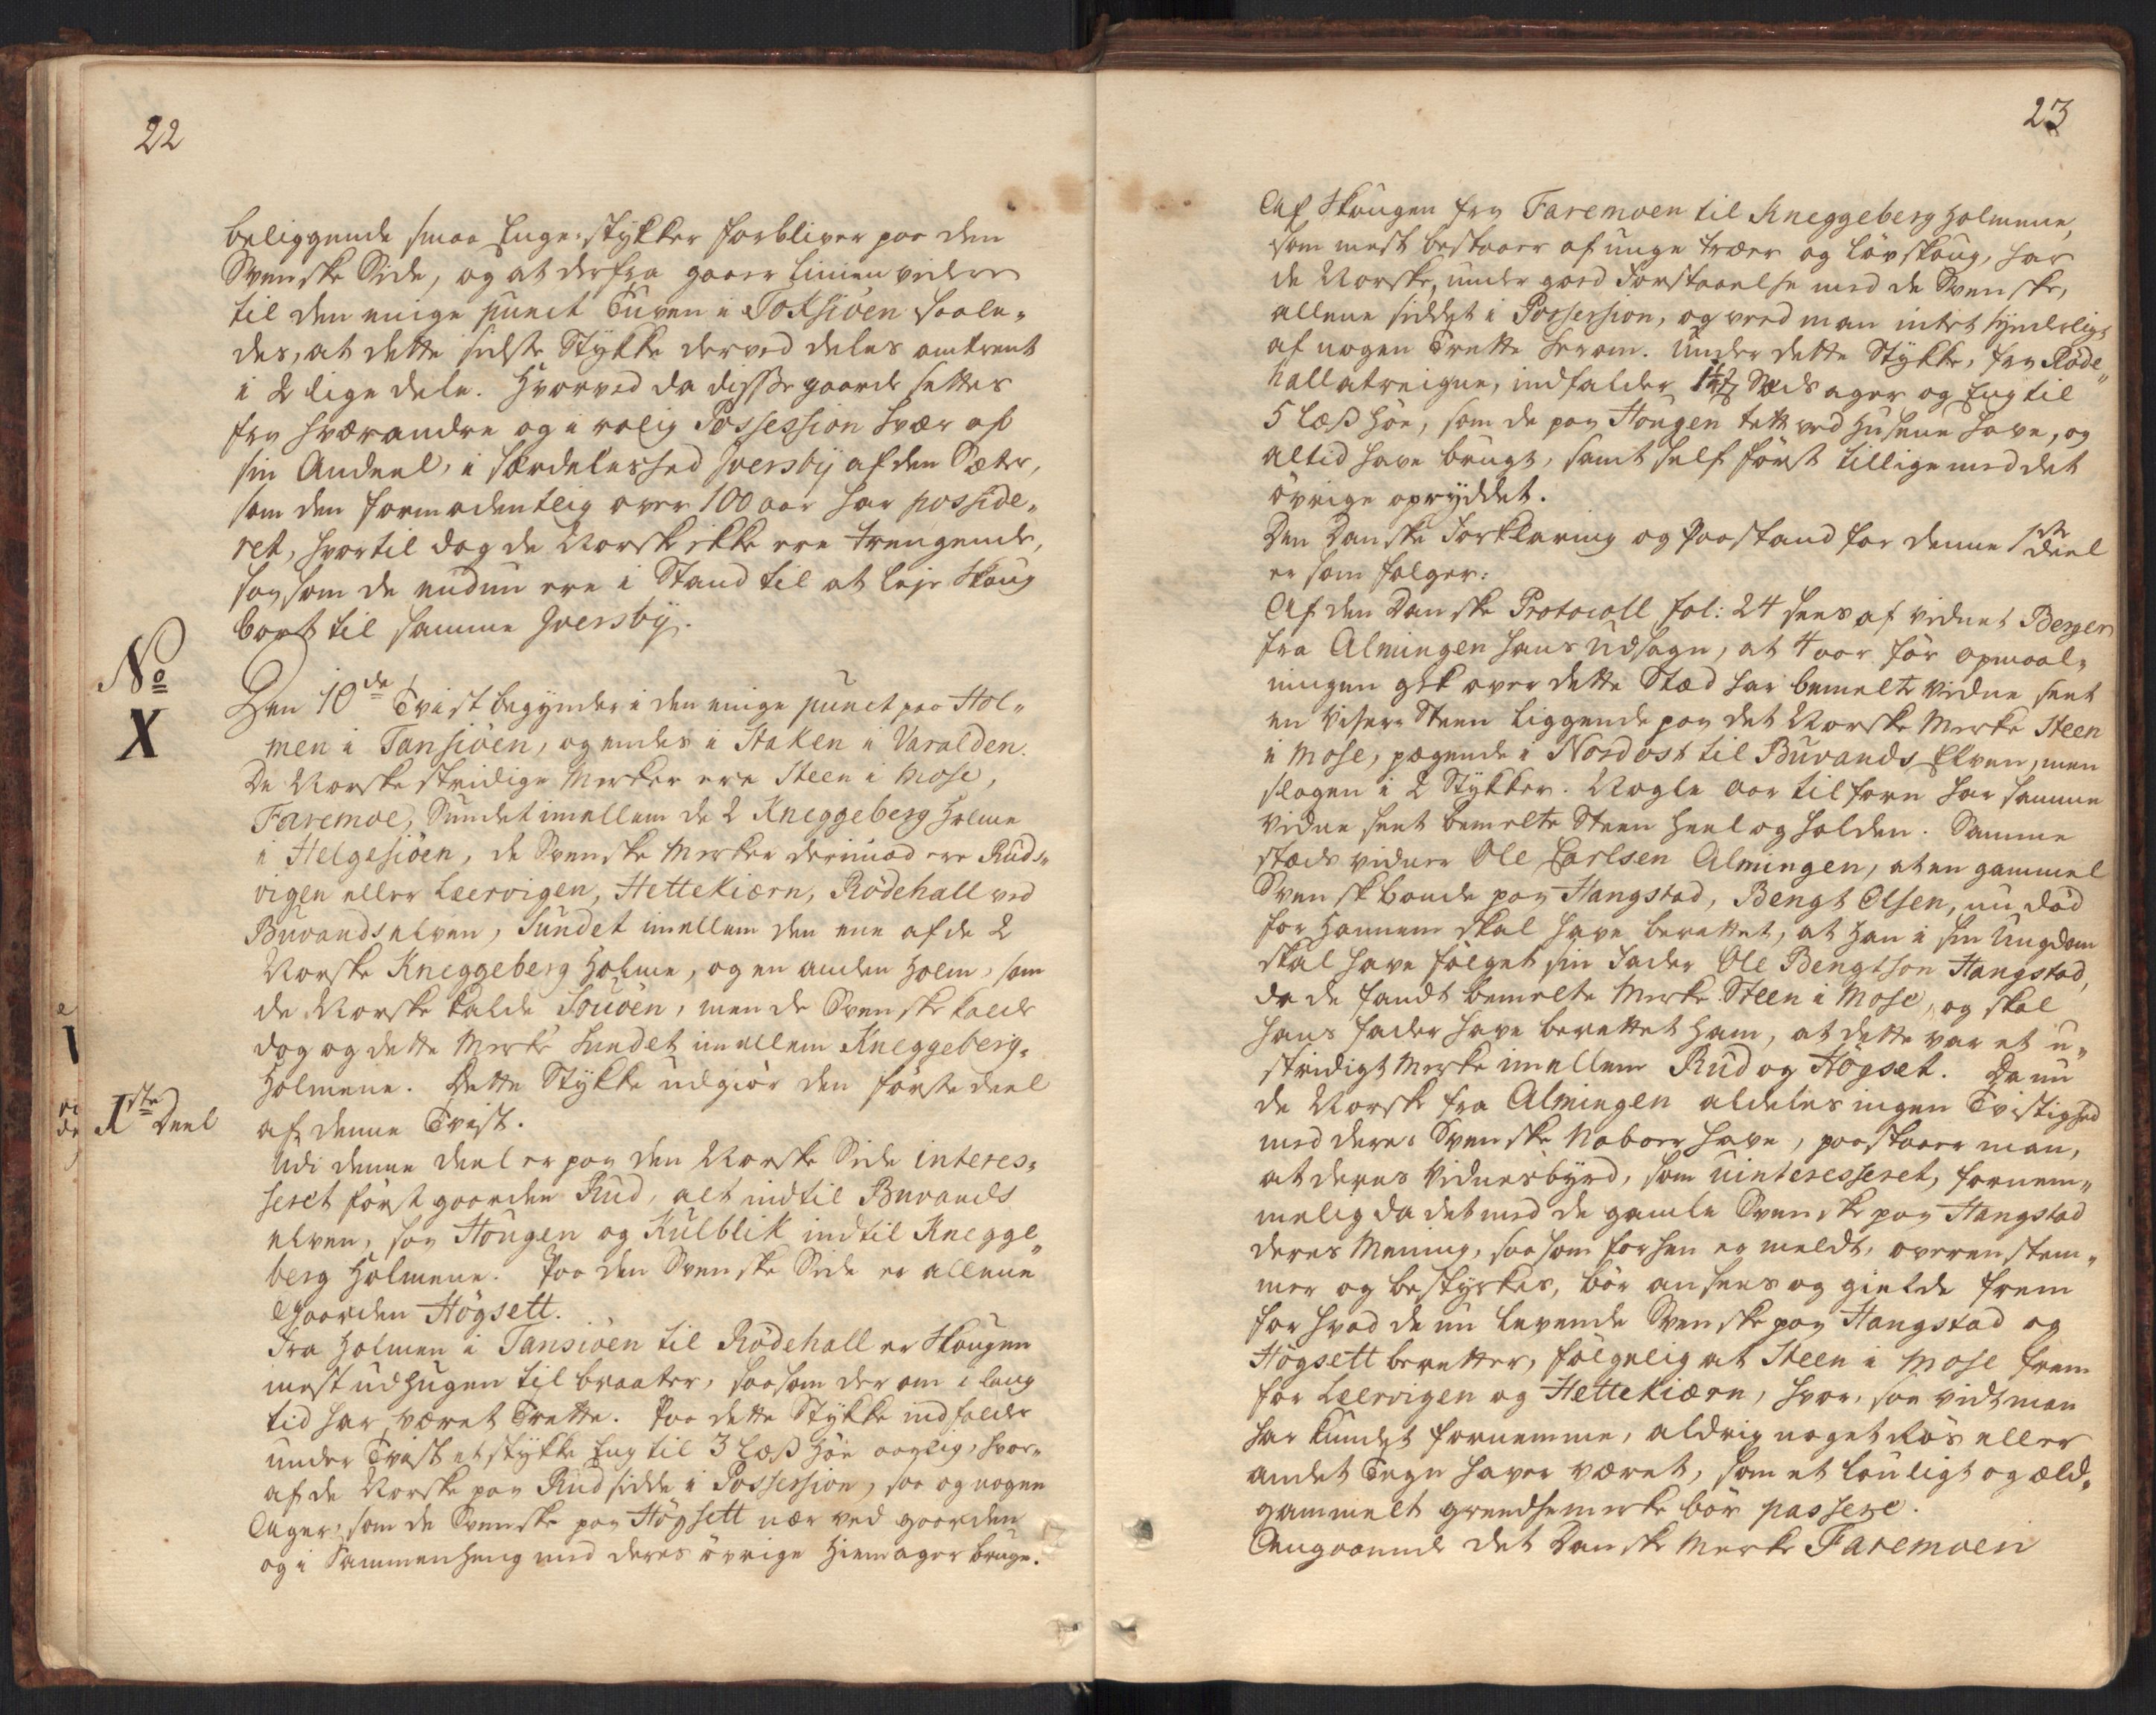 22
beliggende smaa Enge-stykker forbliver paa den
Svenske Side, og at derfra gaaer Linien videre
til den enige punct Tuven i Toksiöen saale-
des, at dette sidste Stykke derved deles omtrent
i 2 lige dele. Hvorved da disse gaarde settes
fra hverandre og i rolig Possession hver af
sin Andeel, i særdeleshed Iversbÿ af den Sæter,
som den formodentlig over 100 aar har posside-
ret, hvortil dog de Norske ikke ere trengende,
saasom de endnu ere i Stand til at leje Skoug
bort til samme Iversbÿ.
No
X
Den 10de Tvist begynder i den enige punct paa Hol-
men i Tansiöen, og endes i Staken i Varalden.
De Norske stridige Merker ere Steen i Mose,
Faremoe, Sundet imellem de 2 Kneggeberg Holme
i Helgesiöen, de Svenske Merker derimod ere Ruds-
vigen eller Leervigen, Hettekiærn, Rödehall ved
Buvandselven, Sundet imellem den ene af de 2
Norske Kneggeberg Holme, og en anden Holm, som
de Norske kalde Souöen, men de Svenske kalde
dog og dette Merke Sundet imellem Kneggeberg-
Holmene. Dette Stykke udgiör den förste deel
Iste Deel
af denne Tvist.
Udi denne deel er paa den Norske Side interes-
seret först gaarden Rud, alt indtil Buvands
elven, saa Hougen og Kulblik indtil Knegge-
berg Holmene. Paa den Svenske Side er allene
Gaarden Högsett.
Fra Holmen i Tansiöen til Rödehall er Skougen
mest udhugen til braater, saasom der om i lang
tid har været Trette. Paa dette Stykke indfalder
under Tvist et stykke Eng til 3 læs Höe aarlig, hvor-
af de Norske paa Rud sidde i Possession, saa og nogen
Ager, som de Svenske paa Högsett nær ved gaarden
og i Sammenheng med deres övrige Hiemager bruge.
23
Af Skougen fra Faremoen til Kneggeberg Holmene,
som mest bestaaer af unge træer og lövskoug, har
de Norske, under goed Forstaaelse med de Svenske,
allene siddet i Possession, og veed man intet synderligt
af nogen Trette herom. Under dette Stykke, fra Röde-
hall atreigne, indfalder Sæds ager og Eng til
5 læs Höe, som de paa Hougen tett ved Husene have, og
altid have brugt, samt self först tillige med det
övrige oprÿddet.
Den Danske Forklaring og Paastand for denne 1ste deel
er som fölger:
Af den Danske Protocoll fol: 24 sees af vidnet Berger
fra Almingen hans Udsagn, at 4 aar för opmaal-
ningen gik over dette Sted har bemelte Vidne seet
en Viser-Steen liggende paa det Norske Merke Steen
i Mose, pegende i Nordost til Buvands Elven, men
slagen i 2 Stykker. Nogle Aar tilforn har samme
vidne seet bemelte Steen heel og holden. Samme
steds vidner Ole Carlsen Almingen, at en gammel
Svensk bonde paa Hangstad, Bengt Olsen, nu död
for Hannem skal have berettet, at han i sin Ungdom
skal have fölget sin Fader Ole Bengtson Hangstad,
da de fandt bemelte Merke Steen i Mose, og skal
hans fader have berettet ham, at dette var et u-
stridigt Merke imellem Rud og Högset. Da nu
de Norske fra Almingen aldeles ingen Tvistighed
med deres Svenske Naboer have, paastaaer man,
at deres Vidnesbyrd, som uinteresseret, fornem-
melig da det med de gamle Svenske paa Hangstad
deres Mening, saasom forhen er meldt, overenstem-
mer og bestyrkes, bör ansees og gielde frem
for hvad de nu levende Svenske paa Hangstad og
Högsett beretter, fölgelig at Steen i Mose frem
för Leervigen og Hettekiærn, hvor, saa vidt man
har kundet fornemme, aldrig noget Rös eller
andet Tegn haver været, som et louligt og æld-
gammelt grendsemerke bör passere.
Angaaende det Danske Merke Faremoen